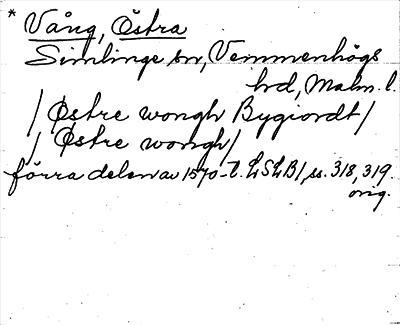 * Vång, Östra
Simlinge sn, Vemmenhögs
hd, Malm. l.
/ Østre wongh Bygiordt /
/ Østre wongh /
förra delen av 1570-t. LSLB1, ss. 318, 319.
orig.